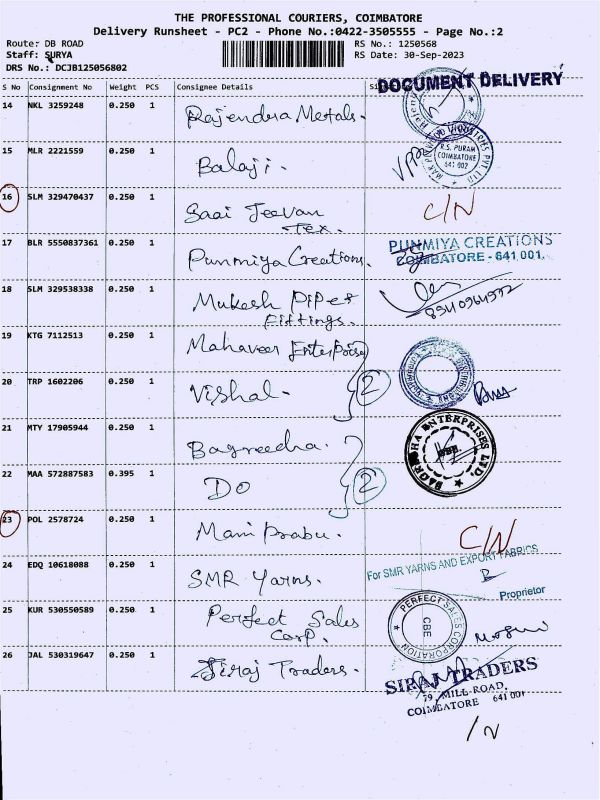 THE PROFESSIONAL COURIERS, COIMBATORE
Delivery Runsheet - PC2 - Phone No.:0422-3505555 - Page No.:2
Route: DB ROAD
RS No.: 1250568
Staff: SURYA
RS Date: 30-Sep-2023
DRS No.: DCJB125056802
DOCUMENT DELIVERY
S No Consignment No Weight PCS Consignee Details
14 NKL 3259248 0.250 1 Rajendra Metals.
15 MLR 2221559 0.250 1 Balaji.
R.S. PURAM
COIMBATORE
641 002
16 SLM 329470437 0.250 1 Saai Jeevan
Tex.
C/N
17 BLR 5550837361 0.250 1 Punmiya Creations.
PUNMIYA CREATIONS
COIMBATORE - 641 001.
18 SLM 329538338 0.250 1 Mukesh Pipes
Fittings.
19 KTG 7112513 0.250 1 Mahaveer Enterprises
20 TRP 1602206 0.250 1 Vishal.
2
21 MTY 17905944 0.250 1 Bagreecha.
ENTERPRISES LTD.
22 MAA 572887583 0.395 1 DO
2
23 POL 2578724 0.250 1 Mani Prabu.
C/N
24 EDQ 10618088 0.250 1 SMR Yarns.
For SMR YARNS AND EXPORT FABRICS
Proprietor
25 KUR 530550589 0.250 1 Perfect Sales
Corp.
PERFECT SALES CORPORATION
CBE
26 JAL 530319647 0.250 1 Siraj Traders.
SIRAJ TRADERS
79, MILL ROAD,
COIMBATORE 641 001